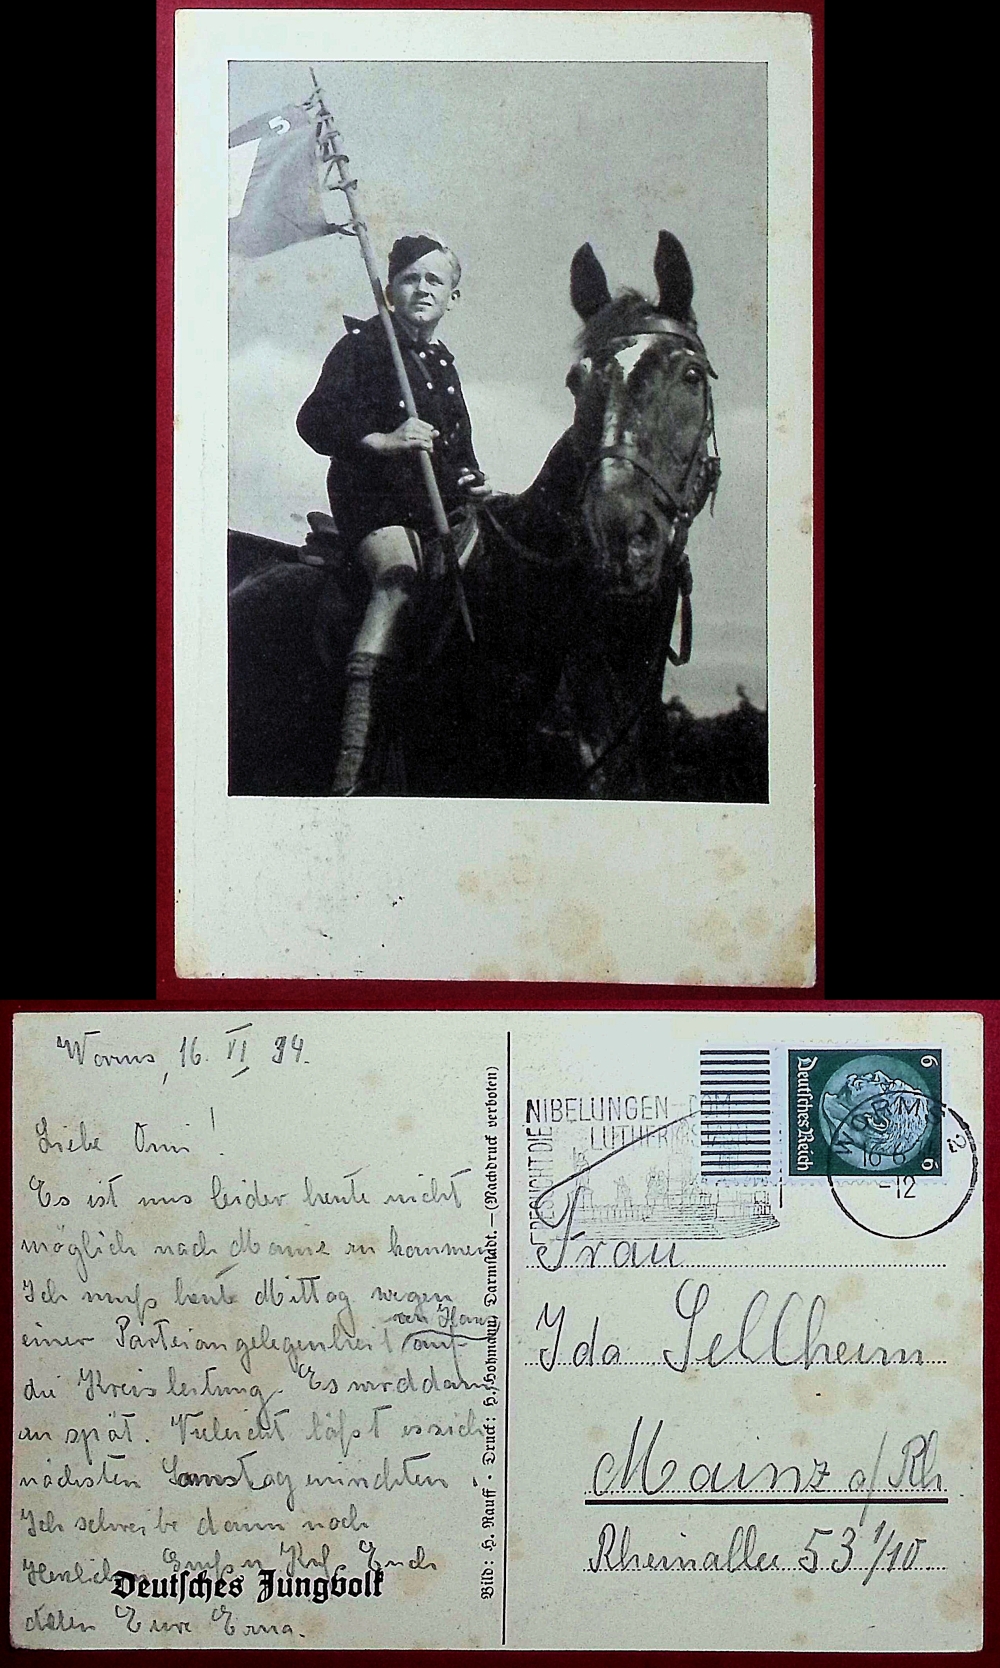 5
Worms, 16. VI 34.
Liebe Omi!
Es ist uns leider heute nicht
möglich nach Mainz zu kommen
Ich muß heute Mittag wegen
einer Parteiangelegenheit auf
die Kreisleitung. Es wird dann
zu spät. Vieleicht läßt es sich
nächsten Samstag einrichten.
Ich schreibe dann noch
Herzlichen Gruß u. Kuß Euch
allen Eure Erna.
Deutsches Jungvolk
Bild: H. Rauff · Druck: H. Hohmann, Darmstadt. — (Nachdruck verboten)
BESUCHT DIE
NIBELUNGEN-DOM
LUTHER
Deutsches Reich
6
6
WORMS 2
16 6
-12
Frau
Ida Sellheim
Mainz a/Rh
Rheinallee 53 1/10